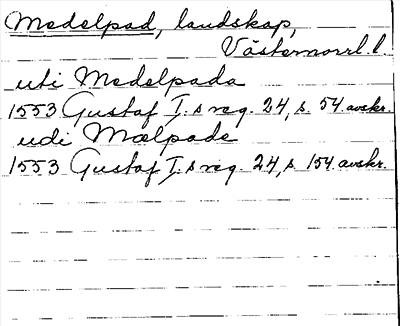 Medelpad, landskap,
Västernorrl. l.
uti Medelpada
1553 Gustaf I.s reg. 24, s. 54. avskr.
udi Mælpade
1553 Gustaf I.s reg. 24, s. 154. avskr.